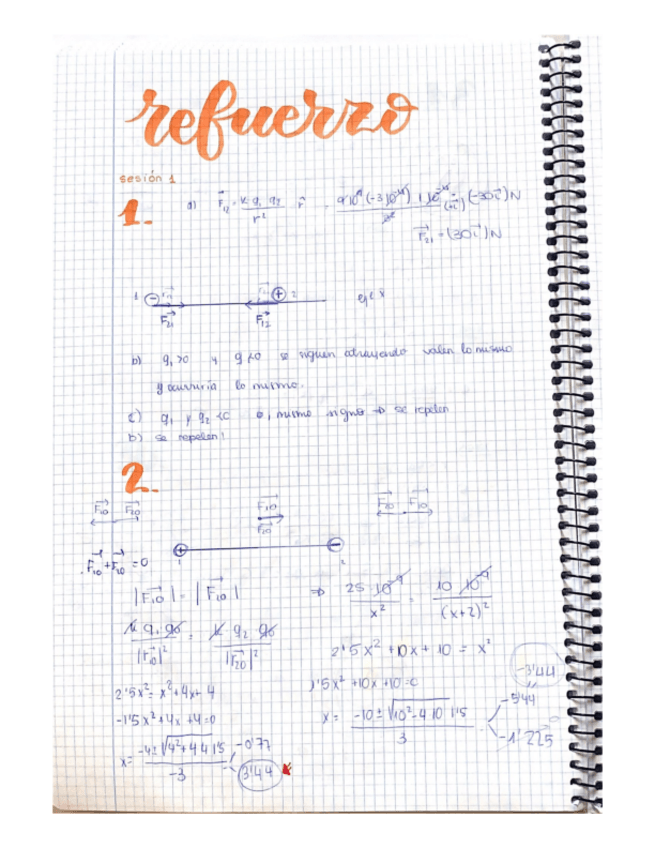 refuerzo
sesión 1
1.
a) F₁₂ = K·q₁ q₂ / r² r̂ = 9·10⁹ (-3·10⁻⁶) 1·10⁻⁶ (-30i) N
F₂₁ = (30i) N
1 ⊖ ⊕ 2 eje x
F₂₁ F₁₂
b) q₁>0 y q<0 se siguen atrayendo valen lo mismo
y ocurriría lo mismo.
c) q₁ y q₂ <0 mismo signo → se repelen
b) se repelen!
2.
F₁₀ F₂₀ F₁₀ F₂₀ F₂₀ F₁₀
F₁₀ + F₂₀ = 0 ⊕ ⊖
1
|F₁₀| = |F₁₀| ⇒ 25·10⁻⁹ / x² = 10·10⁻⁹ / (x+2)²
K q₁ q₀ / |r₁₀|² = K q₂ q₀ / |r₂₀|²
2'5x² + 10x + 10 = x²
-3'44
2'5x² = x² + 4x + 4
1'5x² + 10x + 10 = 0
-1'5x² + 4x + 4 = 0
x = -10 ± √10² - 4·10·1'5 / 3
-5'44
-1'225
x = -4 ± √4² + 4·4·1'5 / -3
-0'77
3'44